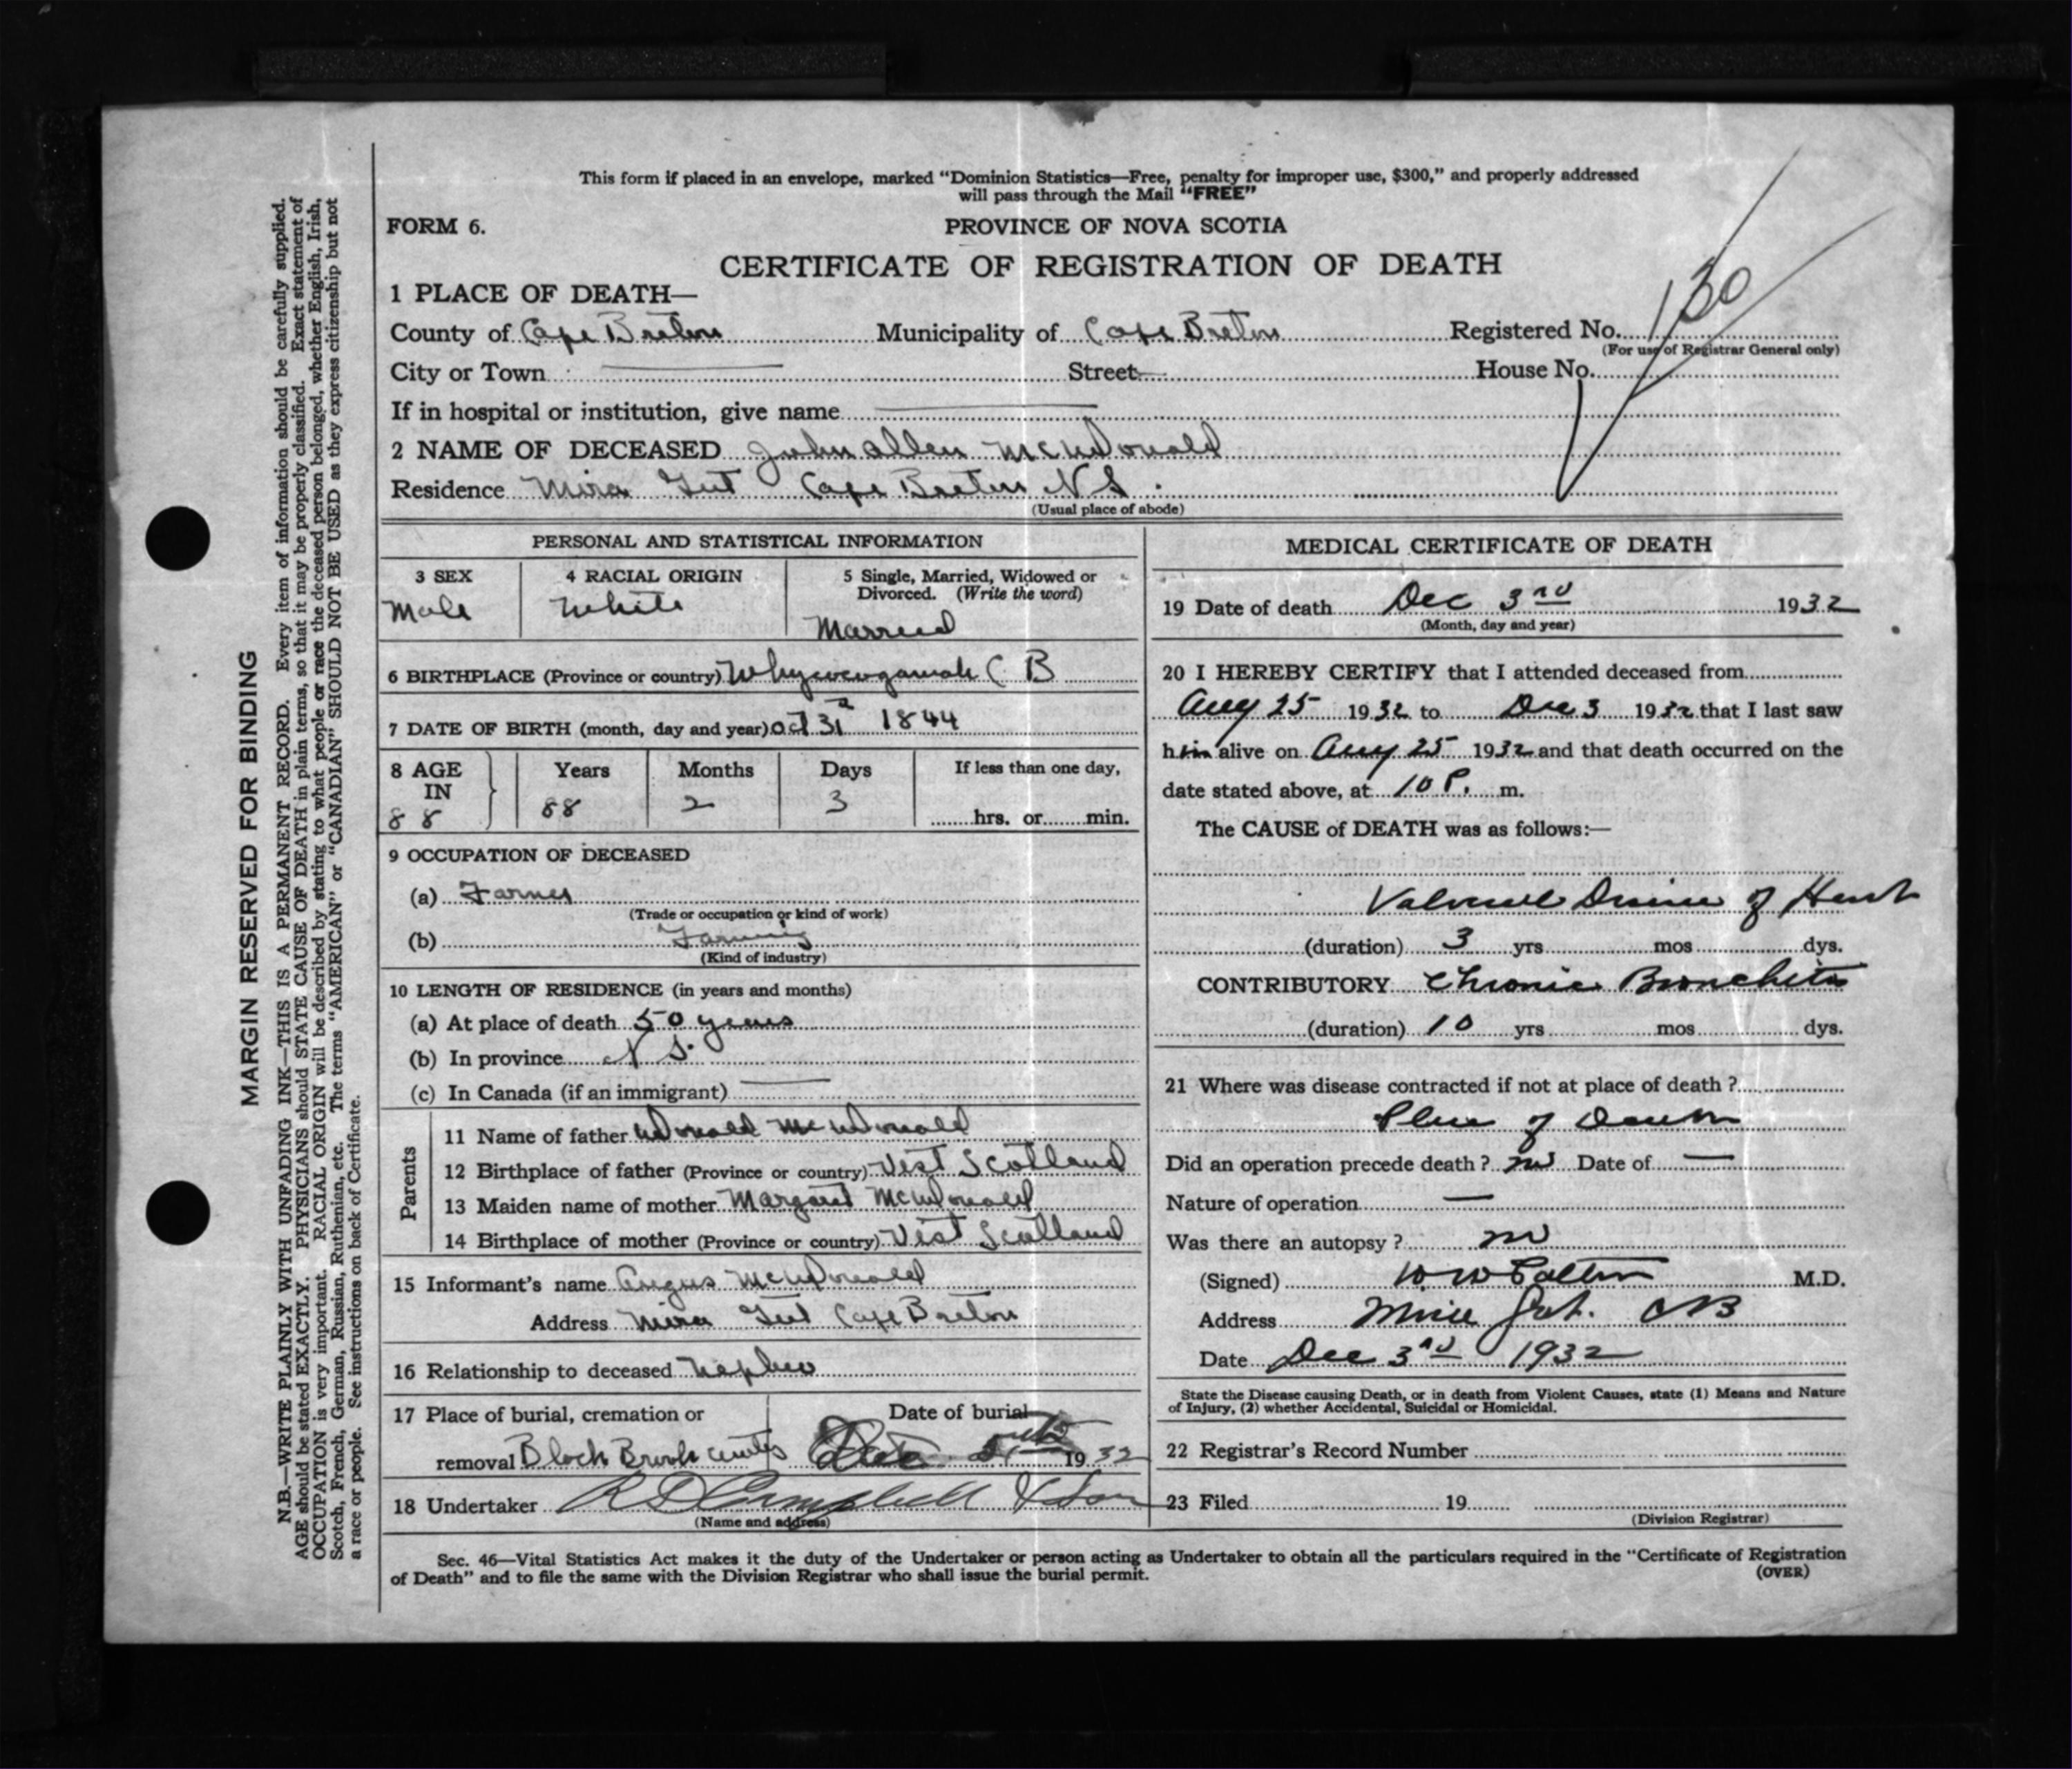 This form if placed in an envelope, marked "Dominion Statistics—Free, penalty for improper use, $300," and properly addressed
will pass through the Mail "FREE"
FORM 6.
PROVINCE OF NOVA SCOTIA
CERTIFICATE OF REGISTRATION OF DEATH
1 PLACE OF DEATH—
County of Cape Breton Municipality of Cape Breton Registered No. 130
(For use of Registrar General only)
City or Town — Street — House No.
If in hospital or institution, give name —
2 NAME OF DECEASED John Allen McDonald
Residence Mira Gut Cape Breton N S.
(Usual place of abode)
PERSONAL AND STATISTICAL INFORMATION
3 SEX 4 RACIAL ORIGIN 5 Single, Married, Widowed or
Divorced. (Write the word)
Male White
Married
6 BIRTHPLACE (Province or country) Whycocogamah C B
7 DATE OF BIRTH (month, day and year) Oct 31 1844
8 AGE Years Months Days If less than one day,
IN
88 88 2 3
hrs. or min.
9 OCCUPATION OF DECEASED
(a) Farmer
(Trade or occupation or kind of work)
(b) Farming
(Kind of industry)
10 LENGTH OF RESIDENCE (in years and months)
(a) At place of death 50 years
(b) In province N S.
(c) In Canada (if an immigrant) —
Parents
11 Name of father Donald McDonald
12 Birthplace of father (Province or country) West Scotland
13 Maiden name of mother Margaret McDonald
14 Birthplace of mother (Province or country) West Scotland
15 Informant's name Angus McDonald
Address Mira Gut Cape Breton
16 Relationship to deceased Nephew
17 Place of burial, cremation or Date of burial
removal Black Brook 1932
18 Undertaker R D Campbell & Son
(Name and address)
MEDICAL CERTIFICATE OF DEATH
19 Date of death Dec 3rd 1932
(Month, day and year)
20 I HEREBY CERTIFY that I attended deceased from
Aug 25 1932 to Dec 3 1932 that I last saw
him alive on Aug 25 1932 and that death occurred on the
date stated above, at 10 P. m.
The CAUSE of DEATH was as follows:—
Valvular Disease of Heart
(duration) 3 yrs mos dys.
CONTRIBUTORY Chronic Bronchitis
(duration) 10 yrs mos dys.
21 Where was disease contracted if not at place of death ?
Place of Death
Did an operation precede death ? no Date of —
Nature of operation —
Was there an autopsy ? no
(Signed) M.D.
Address Mira Gut. CB
Date Dec 3rd 1932
State the Disease causing Death, or in death from Violent Causes, state (1) Means and Nature
of Injury, (2) whether Accidental, Suicidal or Homicidal.
22 Registrar's Record Number
23 Filed 19
(Division Registrar)
Sec. 46—Vital Statistics Act makes it the duty of the Undertaker or person acting as Undertaker to obtain all the particulars required in the "Certificate of Registration
of Death" and to file the same with the Division Registrar who shall issue the burial permit.
(OVER)
MARGIN RESERVED FOR BINDING
N.B.—WRITE PLAINLY WITH UNFADING INK—THIS IS A PERMANENT RECORD. Every item of information should be carefully supplied.
AGE should be stated EXACTLY. PHYSICIANS should STATE CAUSE OF DEATH in plain terms, so that it may be properly classified. Exact statement of
OCCUPATION is very important. RACIAL ORIGIN will be described by stating to what people or race the deceased person belonged, whether English, Irish,
Scotch, French, German, Russian, Ruthenian, etc. The terms "AMERICAN" or "CANADIAN" SHOULD NOT BE USED as they express citizenship but not
a race or people. See instructions on back of Certificate.